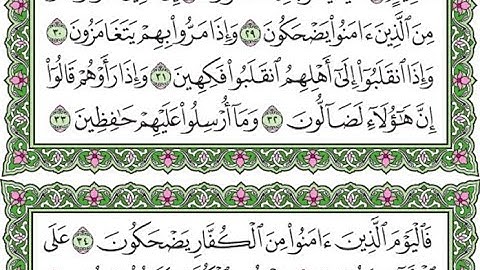 مِنَ ٱلَّذِينَ ءَامَنُوا۟ يَضْحَكُونَ ٢٩ وَإِذَا مَرُّوا۟ بِهِمْ يَتَغَامَزُونَ ٣٠
وَإِذَا ٱنقَلَبُوٓا۟ إِلَىٰٓ أَهْلِهِمُ ٱنقَلَبُوا۟ فَكِهِينَ ٣١ وَإِذَا رَأَوْهُمْ قَالُوٓا۟
إِنَّ هَـٰٓؤُلَآءِ لَضَآلُّونَ ٣٢ وَمَآ أُرْسِلُوا۟ عَلَيْهِمْ حَـٰفِظِينَ ٣٣
فَٱلْيَوْمَ ٱلَّذِينَ ءَامَنُوا۟ مِنَ ٱلْكُفَّارِ يَضْحَكُونَ ٣٤ عَلَى